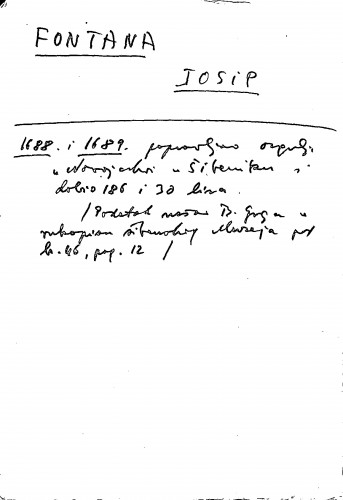 FONTANA
JOSIP
1688. i 1689. popravljao orgulje
u u Šibeniku i
dobio 186 i 30 lira.
/Podatak našao B. u
rukopisu šibenskog Muzeja pod
br. 46, pag. 12 /